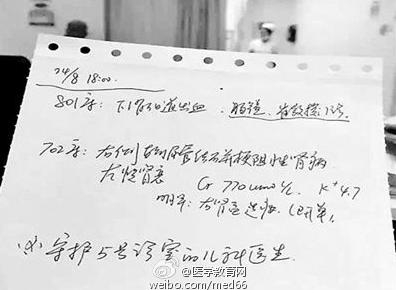 24/8 18:00.
801床: 下消化道出血. 肠镜.
702床: 右侧输尿管结石并梗阻性肾病
左慢肾衰 Cr 770umol/L K+ 4.7
明早: 右肾造
守护5号诊室的儿科医生
医学教育网
weibo.com/med66